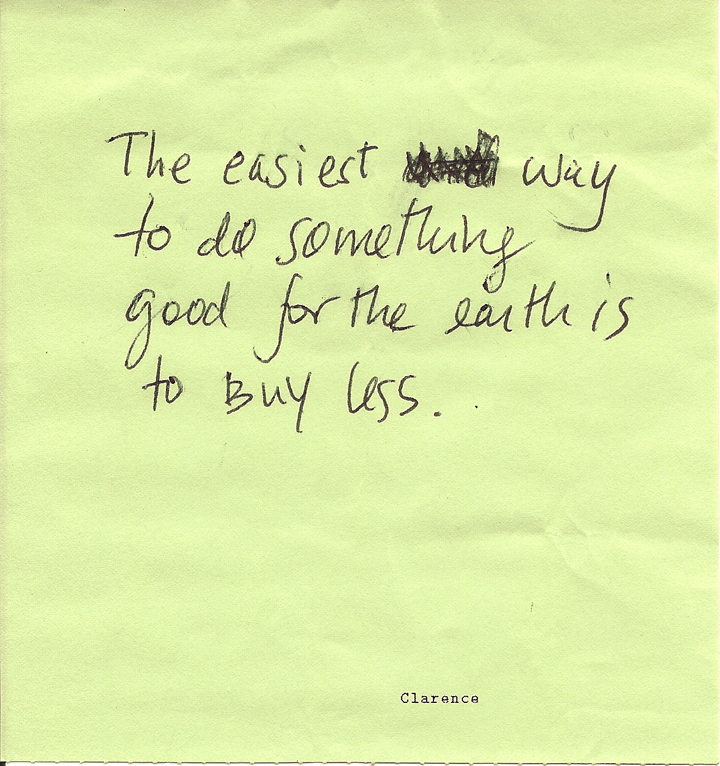 The easiest way
to do something
good for the earth is
to Buy less.
Clarence